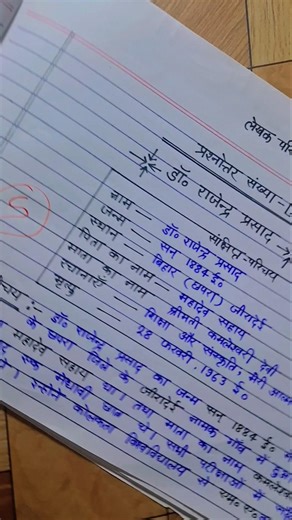 लेखक परि
प्रश्नोत्तर संख्या-
डॉ० राजेन्द्र प्रसाद -
संक्षिप्त-परिचय
5
नाम — डॉ० राजेन्द्र प्रसाद
जन्म — सन 1884 ई०
स्थान — बिहार (छपरा) जीरादेई
पिता का नाम — महादेव सहाय
माता का नाम — श्रीमती कमलेश्वरी देवी
रचनाएँ — शिक्षा और संस्कृति, मेरी आत्म
मृत्यु — 28 फरवरी, 1963 ई०
:- डॉ० राजेन्द्र प्रसाद का जन्म सन 1884 ई० में
के छपरा जिले के जीरादेई गाँव में हुआ
महादेव सहाय था। तथा माता का नाम कमलेश्व
एक मेधावी छात्र थे। सभी परीक्षाओं में
थे। इन्होंने कोलकता विश्वविद्यालय से एम० ए०